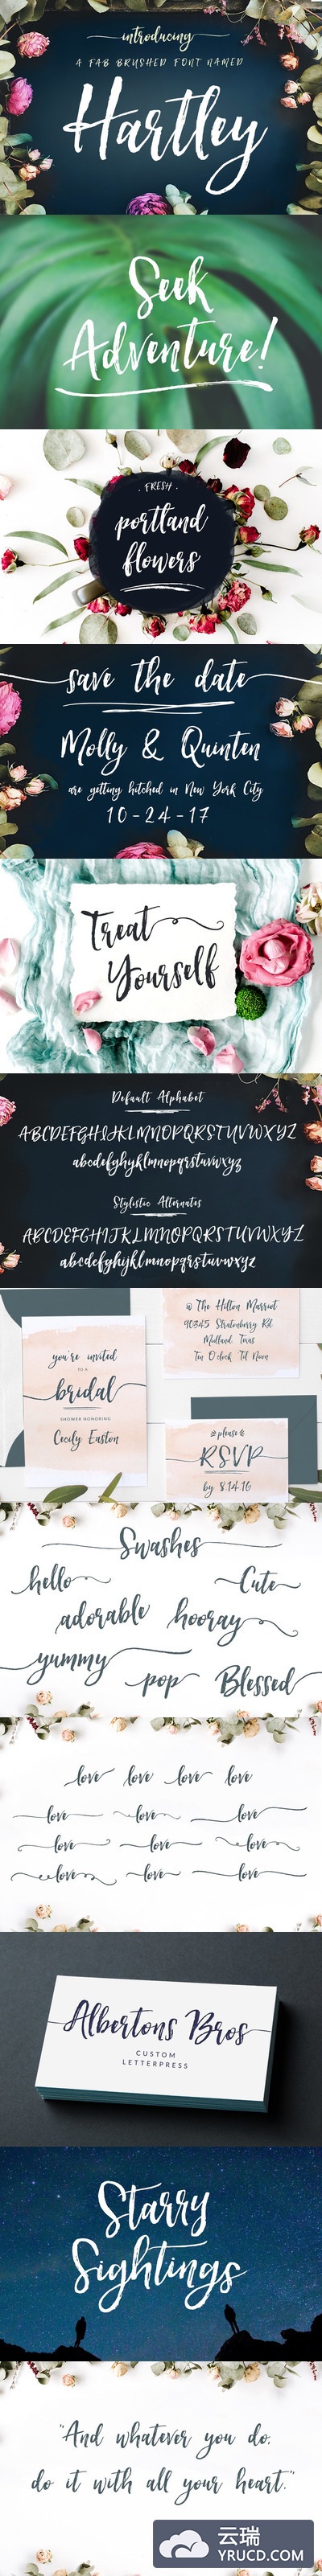 introducing
A FAB BRUSHED FONT NAMED
Hartley
Seek
Adventure!
· FRESH ·
portland
flowers
save the date
Molly & Quinten
are getting hitched in New York City
10-24-17
Treat
Yourself
Default Alphabet
ABCDEFGHIJKLMNOPQRSTUVWXYZ
abcdefghijklmnopqrstuvwxyz
Stylistic Alternates
ABCDEFGHIJKLMNOPQRSTUVWXYZ
abcdefghijklmnopqrstuvwxyz
@ The Hilton Marriot
90345 Stratenberry Rd.
Midland, Texas
Ten O'clock 'Til Noon
you're invited
TO A
bridal
SHOWER HONORING
Cecily Easton
please
RSVP
by 8.14.16
Swashes
hello
Cute
adorable
hooray
yummy
pop
Blessed
love love love love
love love love
love love love
love love love
Albertons Bros
CUSTOM
LETTERPRESS
Starry
Sightings
"And whatever you do,
do it with all your heart."
云瑞
YRUCD.COM